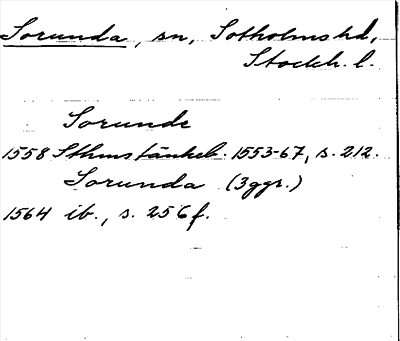 Sorunda, sn, Sotholms hd,
Stockh. l.
Sorunde
1558 Sthms tänkeb. 1553-67, s. 212.
Sorunda (3ggr.)
1564 ib., s. 256f.